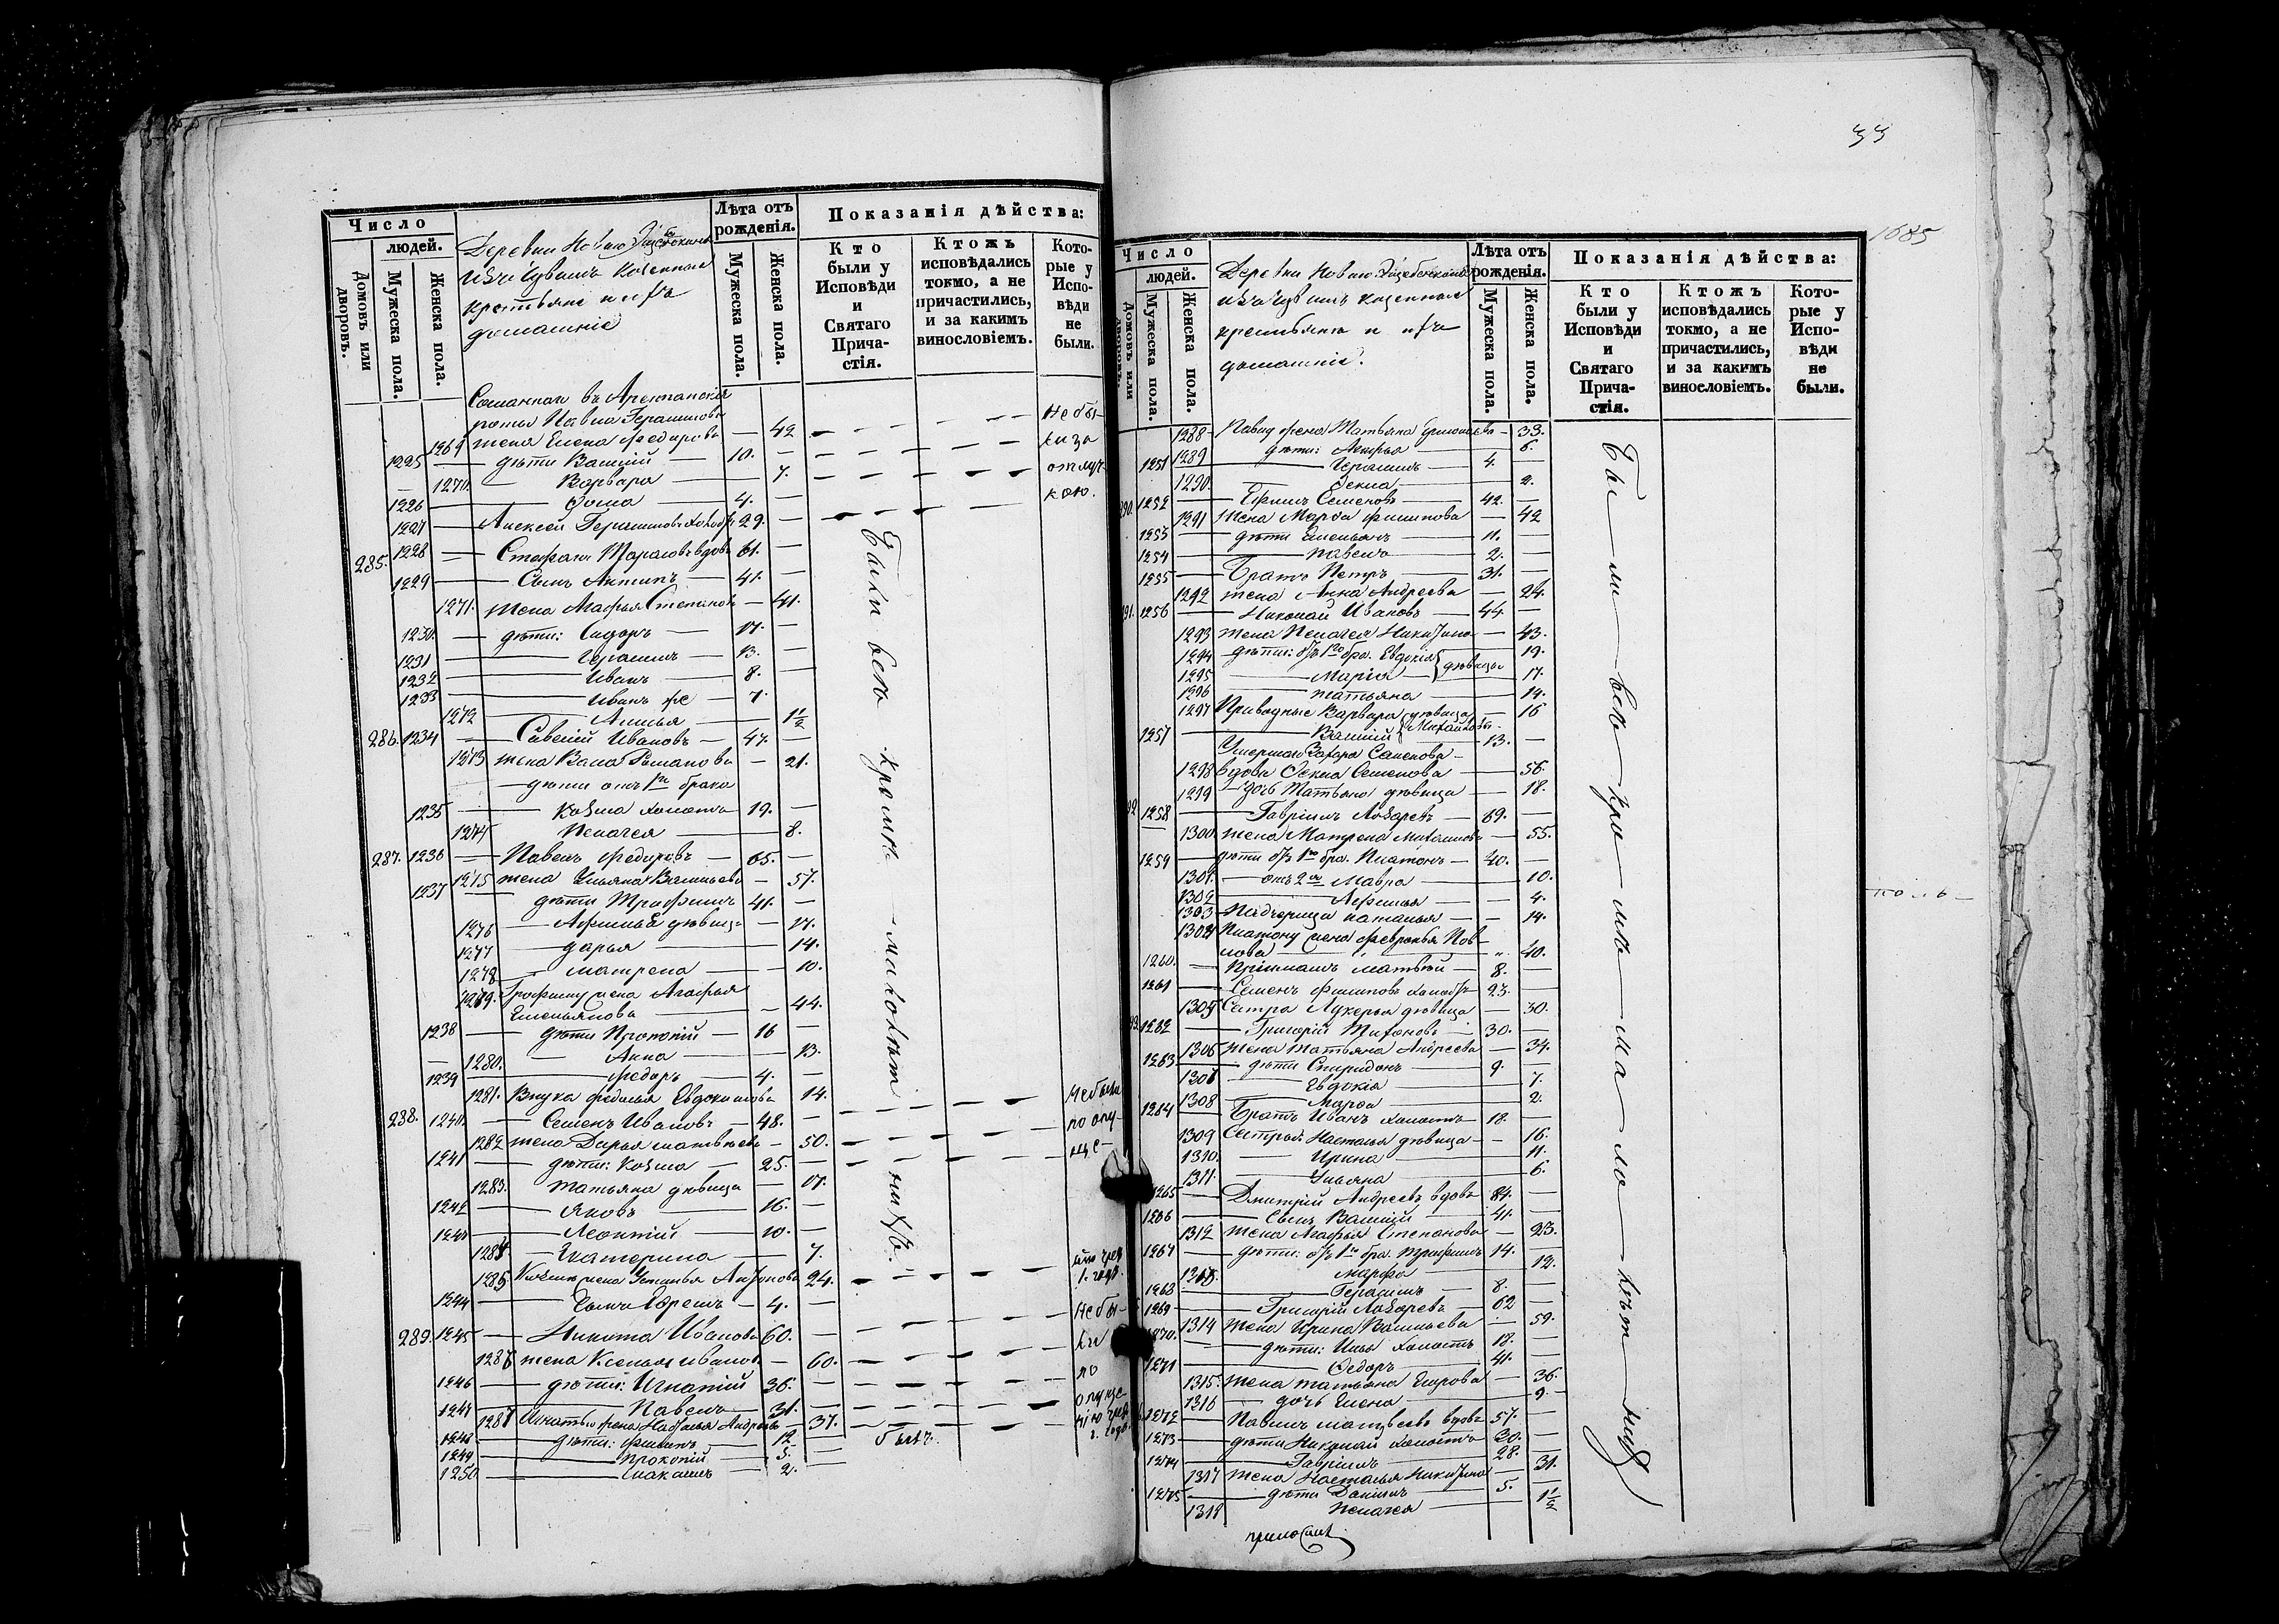 33
1685
Число
людей.
Домовъ или дворовъ.
Мужеска пола.
Женска пола.
Деревни Новаго
изъ Чувашъ казенные
крестьяне и ихъ
домашніе
Лѣта отъ рожденія.
Мужеска пола.
Женска пола.
Показанія дѣйства:
Кто были у Исповѣди и Святаго Прича- стія.
Ктожъ исповѣдались токмо, а не причастились, и за какимъ винословіемъ.
Кото- рые у Испо- вѣди не были.
роты Павла Герасимова
1269 жена Елена Федорова — 42
1225 — дѣти Василій — 10. —
1270. Варвара — 7.
1226 — Фома — 4. —
1227 — Алексей Герасимовъ 29. —
285. 1228 — Стефанъ Тарасовъ вдовъ 61. —
1229 — Сынъ Антипъ — 41. —
1271. жена Агафья Степанова — 41.
1230. — дѣти: Сидоръ — 17. —
1231 — Герасимъ — 13. —
1232 — Иванъ — 8. —
1233 — Иванъ же — 7.
1272 — 1½
286. 1234 — Савелій Ивановъ — 47. —
1273 жена Васса Романова — 21.
— дѣти отъ 1го брака
1235 — Козма холостъ 19. —
1274 Пелагея — 8.
287. 1236 — Павелъ Федоровъ — 65. —
1275 жена Ульяна Васильева — 57.
1237 — дѣти Трофимъ 41. —
1276 — Афимья дѣвица — 17.
1277 — Дарья — 14.
1278 — Матрена — 10.
1279. Трофиму жена Агафья
Емельянова — 44.
1238 — дѣти Прокопій — 16 —
1280. — Анна — 13.
1239 — Федоръ — 4. —
1281. Внука Федосья Евдокимова 14.
288. 1240. — Семенъ Ивановъ — 48. —
1282 жена Дарья Матвѣева — 50.
1241 — дѣти: Козма — 25. —
1283. Татьяна дѣвица — 17.
1242 — Яковъ — 16. —
1243 — Леонтій — 10. —
1284 — Екатерина — 7.
1285 Козмѣ жена Устинья Антонова 24.
1244 — Сынъ Ефремъ — 4. —
289. 1245 — Никита Ивановъ 60. —
1286 жена Ксенья Иванова — 60.
1246 — дѣти: Игнатій 36. —
1247 — Павелъ — 31. —
1287 Игнатью жена Наталья Андреева — 37.
1248 — дѣти: Филипъ — 12 —
1249 — Прокопій — 5. —
1250 — Максимъ — 2. —
Были всѣ кромѣ малолѣтнихъ.
Не бы-
ли за
отлуч-
кою.
Не были
по опу-
ще-
1. годъ.
Не бы-
ли
по
опуще-
нію
Число
людей.
Домовъ или дворовъ.
Мужеска пола.
Женска пола.
Деревни Новаго
изъ Чувашъ казенные
крестьяне и ихъ
домашніе.
Лѣта отъ рожденія.
Мужеска пола.
Женска пола.
Показанія дѣйства:
Кто были у Исповѣди и Святаго Прича- стія.
Ктожъ исповѣдались токмо, а не причастились, и за какимъ винословіемъ.
Кото- рые у Испо- вѣди не были.
1288 — Павлу жена Татьяна — 33.
1289 дѣти: — 6.
1251 — Герасимъ — 4. —
1290. — Фекла — 2.
290. 1252 — Ефимъ Семеновъ — 42. —
1291 жена Марфа Филипова — 42
1253 — дѣти Емельянъ — 11. —
1254 — Павелъ — 2. —
1255 — Братъ Петръ — 31. —
1292 жена Анна Андреева — 24.
291. 1256 — Николай Ивановъ — 44 —
1293 жена Пелагея Никитина — 43.
1294 — дѣти: отъ 1го бра. Евдокія — 19.
дѣвицы
1295 — Марія — 17.
1296 — Татьяна — 14.
1297 Приводные Варвара дѣвица — 16
1257 — Василій Михайловы — 13. —
Умершаго Захара Семенова —
1298 вдова Фекла Семенова — 56.
1299 — дочь Татьяна дѣвица — 18.
292 1258 — Гаврилъ Лазаревъ — 69. —
1300 жена Матрена Михайлова — 55.
1259 — дѣти отъ 1го бра. Платонъ — 40. —
1301. — отъ 2го Мавра — 10.
1302 — Афимья — 4.
1303 — Падчерица Наталья — 14.
1304 Платону жена Февронья Пав-
лова — 40.
1260. — Пріимышъ Матвѣй — 8. —
1261 — Семенъ Филиповъ 23. —
1305 Сестра Лукерья дѣвица — 30.
293. 1262 — Григорій Тихоновъ — 30. —
1306 жена Татьяна Андреева — 34.
1263 — дѣти Спиридонъ — 9. —
1307 — Евдокія — 7.
1308 — Марфа — 2.
1264 — Братъ Иванъ холостъ — 18. —
1309 Сестры: Настасья дѣвица — 16.
1310. — Ирина — 11.
1311. — Ульяна — 6.
1265 — Дмитрій Андреевъ вдовъ 84. —
1266 — Сынъ Василій — 41. —
1312 жена Агафья Степанова — 23.
1267 — дѣти: отъ 1го бра. Трофимъ 14. —
1313. Марфа — 12.
1268 — Герасимъ — 8. —
1269 — Григорій Лазаревъ — 62 —
1314 жена Ирина Васильева — 59.
1270. — дѣти: Илья холостъ 18. —
1271 — Федоръ — 41. —
1315. жена Татьяна Егорова — 36.
1316 — дочь Елена — 9.
1272 — Павелъ Матвѣевъ вдовъ 57. —
1273 — дѣти Николай холостъ 30. —
1274 — Гаврилъ — 28. —
1317 жена Настасья Никитина — 31.
1275 — дѣти Данилъ — 5. —
1318 Пелагея — 1½
Были всѣ кромѣ малолѣтнихъ